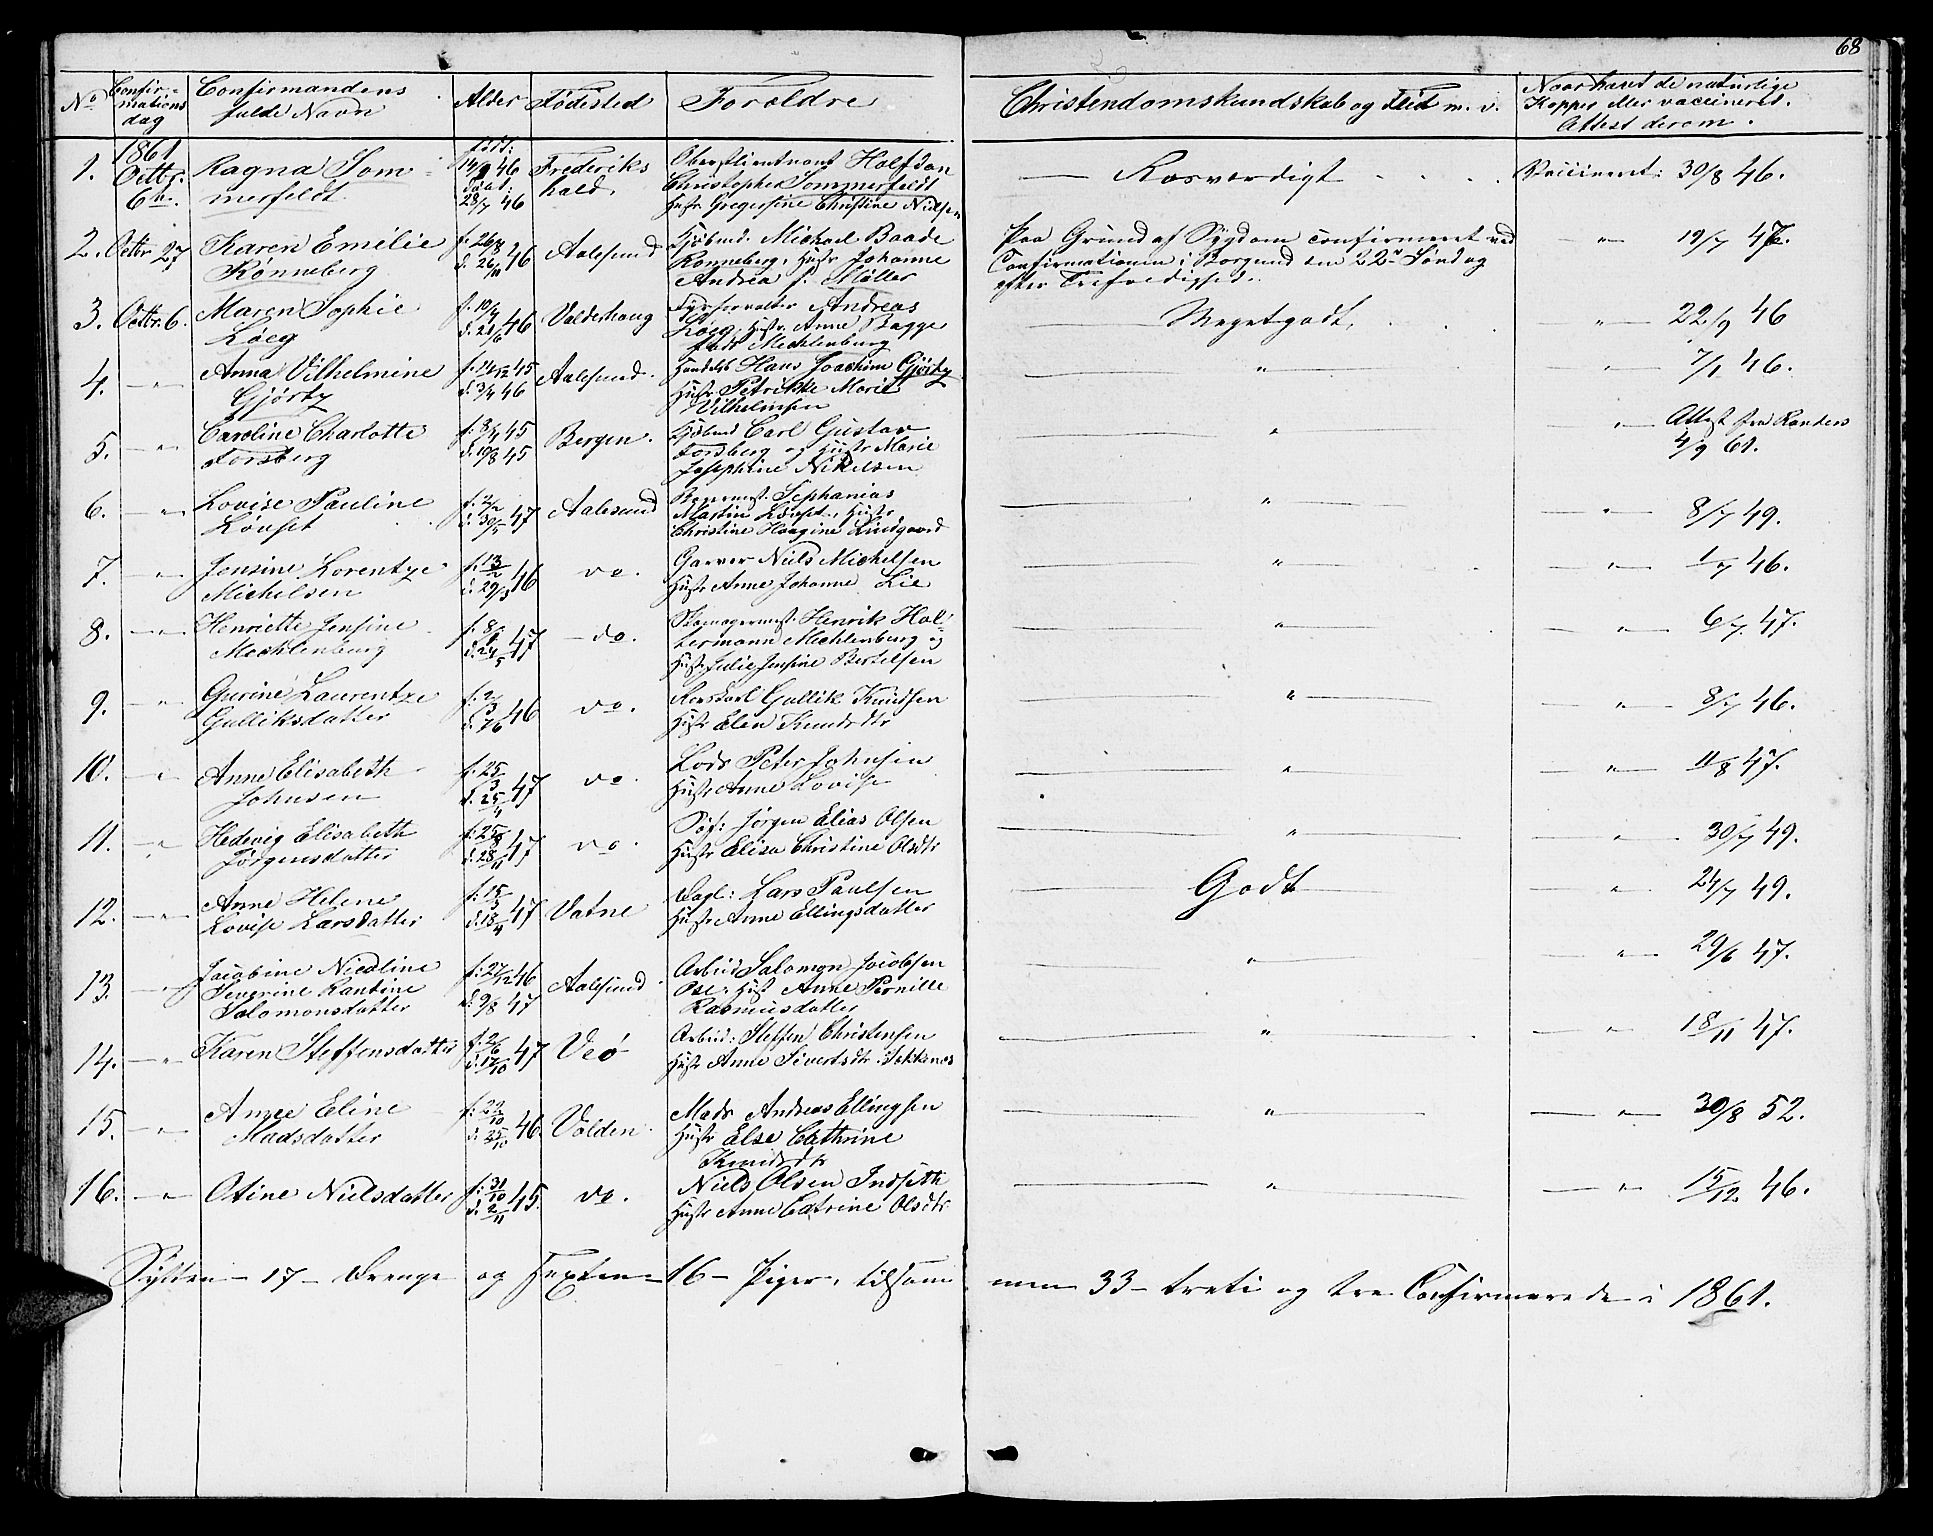 68
No Confirmations dag Confirmandens fulde Navn Alder Fødested Forældre Christendomskundskab og Flid m. v. Naar havt de naturlige Kopper eller vaccineret. Attest derom.
1. 1861 Octbr. 6te. Ragna Sommerfeldt Frederikshald. Oberstlieutnant Halfdan Christopher Sommerfeldt Hustr Gregersine Christine Nielsen Rosværdigt Vaccineret: 30/8 46.
2. Octbr 27 Karen Emilie Rønneberg Aalesund Kjøbmd. Michael Baade Rønneberg, Hustr Johanne Andrea f. Møller Paa Grund af Sygdom confirmeret ved Confirmationen i Borgund den 22de Søndag efter Trefoldighed. " 19/7 47.
3. Octbr. 6. Maren Sophie Koeg 46 Valderhaug Fyrforvalter Andreas Koeg, Hustr. Anne Bagge født Mechlenburg Meget godt. " 22/9 46
4. " Anna Vilhelmine Gjørtz 45 46 Aalesund. Hans Joachim Gjørtz Hustr Petrikke Marie Vilhelmsen " " 7/1 46.
5. " Caroline Charlotte Forsberg f. 8/7 45 d. 19/8 45 Bergen. Kjøbmd Carl Gustav Forsberg og Hustr Marie Josephine Nikelsen " " Attest fra Randers 4/9 61.
6. " Lovise Pauline Løvset f. 2/2 d. 30/5 47 Aalesund Sephanias Martin Løvset, Hustr Christine Haagine Lundgaard " " 8/7 49.
7. " Jensine Lorentze Michelsen f. 13/2 d. 29/3 46 do. Garver Niels Michelsen Hustr Anne Johanne Lie " " 1/7 46.
8. " Henriette Jensine Mechlenburg 47 do. Skomagermest. Henrik Holtermann Mechlenburg og Hustr Julie Jensine Bertelsen " " 6/7 47.
9. " Gurine Laurentze Gulliksdatter 46 do. Gullik Knudsen Hustr Elen Knudsdtr " " 8/7 46.
10. " Anne Elisabeth Johnsen f. 25/3 d. 25/4 47 do Lods Peter Johnsen Hustr Anne Lovise " " 11/8 47.
11. " Hedevig Elisabeth Jørgensdatter f. 25/8 d. 28/11 47 do. Søf: Jørgen Elias Olsen Hustr Elisa Christine Olsdtr " " 30/7 49.
12. " Anne Helene Lovise Larsdatter f. 15/3 d. 18/4 47 Vatne Dagl: Lars Paulsen Hustr Anne Ellingsdatter Godt " 24/7 49.
13. " Jacobine Nicoline Severine Rantine Salomonsdatter f. 27/12 46 d. 9/8 47 Aalesund. Arbeid Salomon Jacobsen Ose, Hust Anne Pernille Rasmusdatter " " 29/6 47.
14. " Karen Steffensdatter f. 2/6 d. 17/10 47 Veø Arbeid: Steffen Christensen Hustr Anne Sivertsdtr Sekkenes " " 18/11 47.
15. " Anne Eline Madsdatter f. 22/10 d. 25/10 46. Volden. Mads Andreas Ellingsen Hustr Else Cathrine Knudsdtr " " 30/8 52.
16. " Oline Nielsdatter f. 31/10 d. 2/11 45. do. Niels Olsen Indseth Hustr Anne Catrine Olsdtr " " 15/12 46.
Sytten – 17 – Drenge og Sexten – 16 – Piger, tilsammen 33 – treti og tre Confirmerede i 1861.